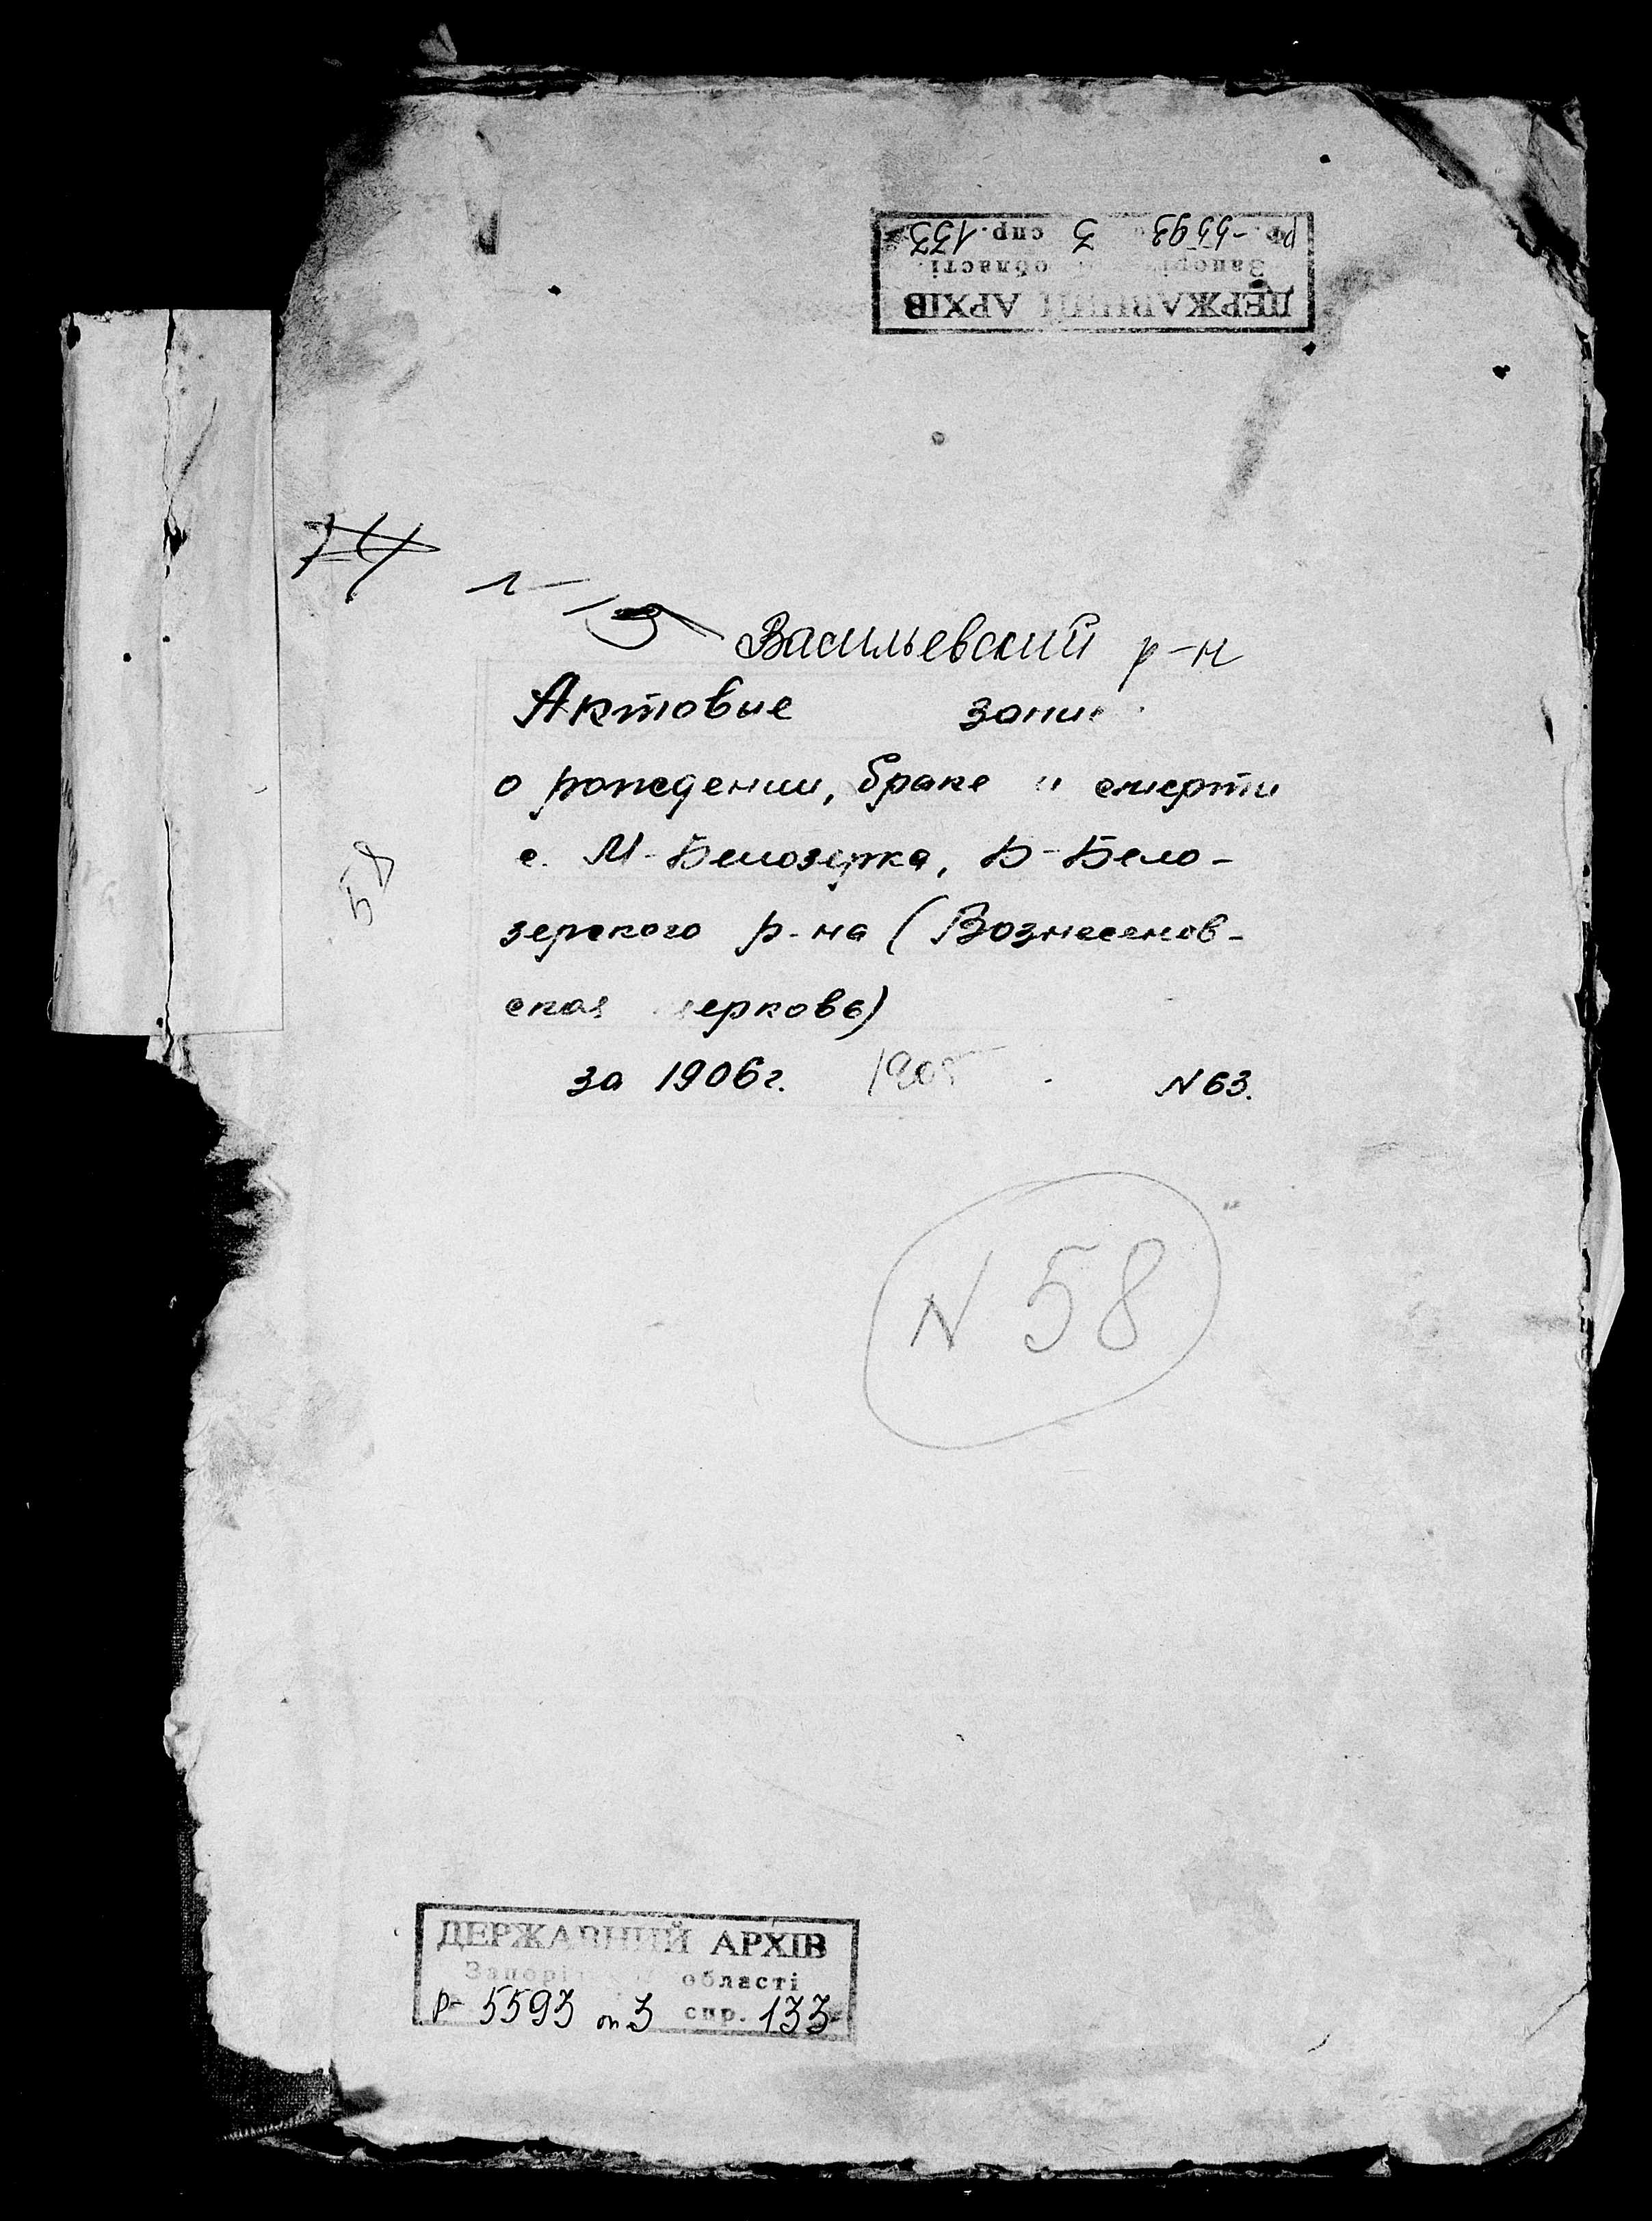 р-5593 3 спр. 133
Запорі области
ДЕРЖАВНИЙ АРХІВ
Васильевский р-н
Актовые запи
о рождении, браке и смерти
с. М-Белозерка, Б-Бело-
зерского р-на (Вознесенов-
ская церковь)
за 1906г. 1905 N 63.
58
N 58
ДЕРЖАВНИЙ АРХІВ
Запорі області
р- 5593 оп 3 спр. 133